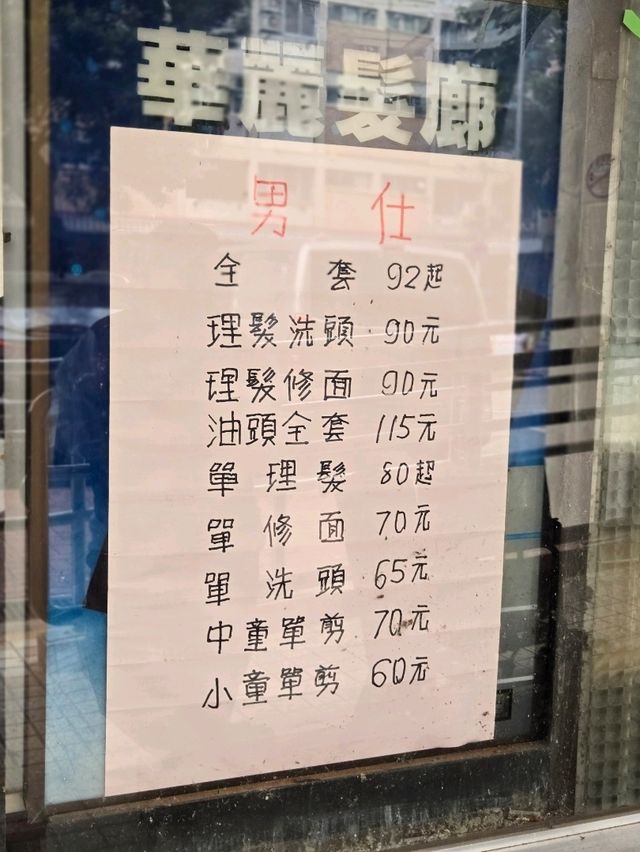 華麗髮廊
男 仕
全 套 92起
理髮洗頭 90元
理髮修面 90元
油頭全套 115元
單 理 髮 80起
單 修 面 70元
單 洗 頭 65元
中童單剪 70元
小童單剪 60元